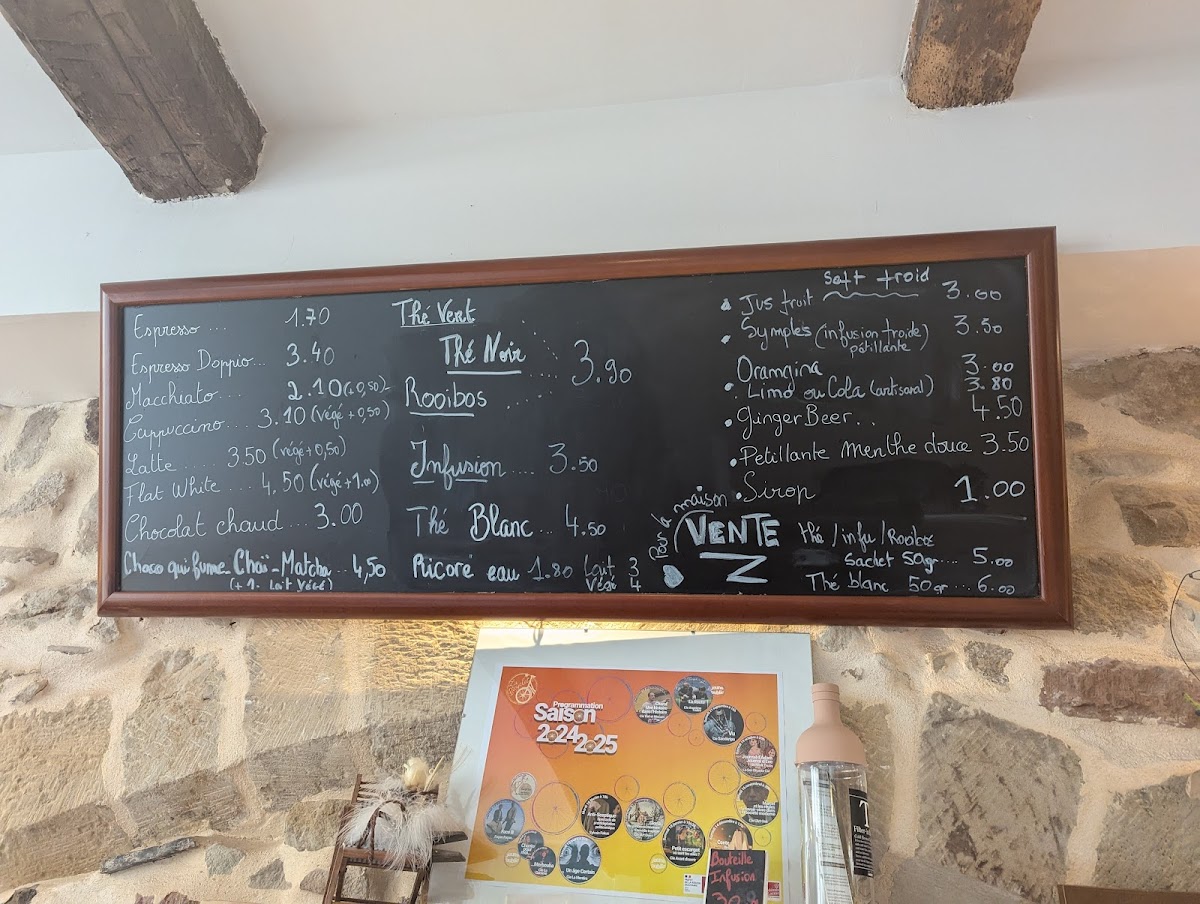 Espresso ... 1.70
Espresso Doppio... 3.40
Macchiato.... 2.10 (+0,50)
Cappuccino... 3.10 (végé +0,50)
Latte ..... 3.50 (végé +0,50)
Flat White .... 4.50 (végé +1.00)
Chocolat chaud ... 3.00
Choco qui fume_Chaï_Matcha... 4,50
(+1. Lait végé)
Thé Vert
Thé Noir
Rooibos
3.90
Infusion .... 3.50
Thé Blanc... 4.50
Ricoré eau 1.80 Lait 3
Végé 4
Soft froid
Jus fruit 3.00
Symples (infusion froide) 3.50
pétillante
Orangina 3.00
Limo ou Cola (artisanal) 3.80
Ginger Beer.. 4.50
Petillante Menthe douce 3.50
Sirop 1.00
Pour à maison
VENTE
thé / infu / Rooibos
Sachet 50gr.... 5.00
Thé blanc 50gr... 6.00
Programmation
Saison
2024
2025
Bouteille
Infusion